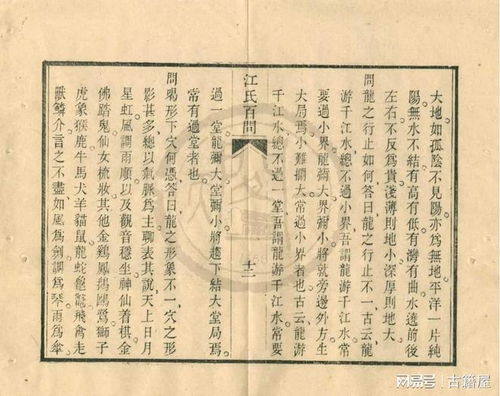 大地。如孤陰不見陽。亦爲無地。平洋一片純
陽無水不結。有高有低。有灣有曲。水遶前後
左右不反爲貴。淺薄則地小。深厚則地大。
問龍之行止如何。答曰龍之行止不一。古云龍
游千江水總不過小界。吾謂龍游千江水。常
要過小界。龍彌大界彌小。將就旁邊外方生
大局焉。小難攔大。常過小界者也。古云龍游
千江水總不過一堂。吾謂龍游千江水。常要
江氏百問
十二
過一堂。龍彌大堂彌小。將越下結大堂局焉。
常有過堂者也。
問喝形下穴何憑。答曰龍之形象不一。穴之形
影甚多。總以氣脈爲主。聊表其說。天上日月
星虹風調雨順。以及觀音穩坐。神仙着棋。金
佛踏鬼。仙女梳妝。其他金鷄鳳鶴鷗鷺獅子
虎象猴鹿牛馬犬羊貓鼠龍蛇龜。飛禽走
獸鱗介。言之不盡。如風爲劍。調爲琴。雨爲傘
搜狐号@古籍屋